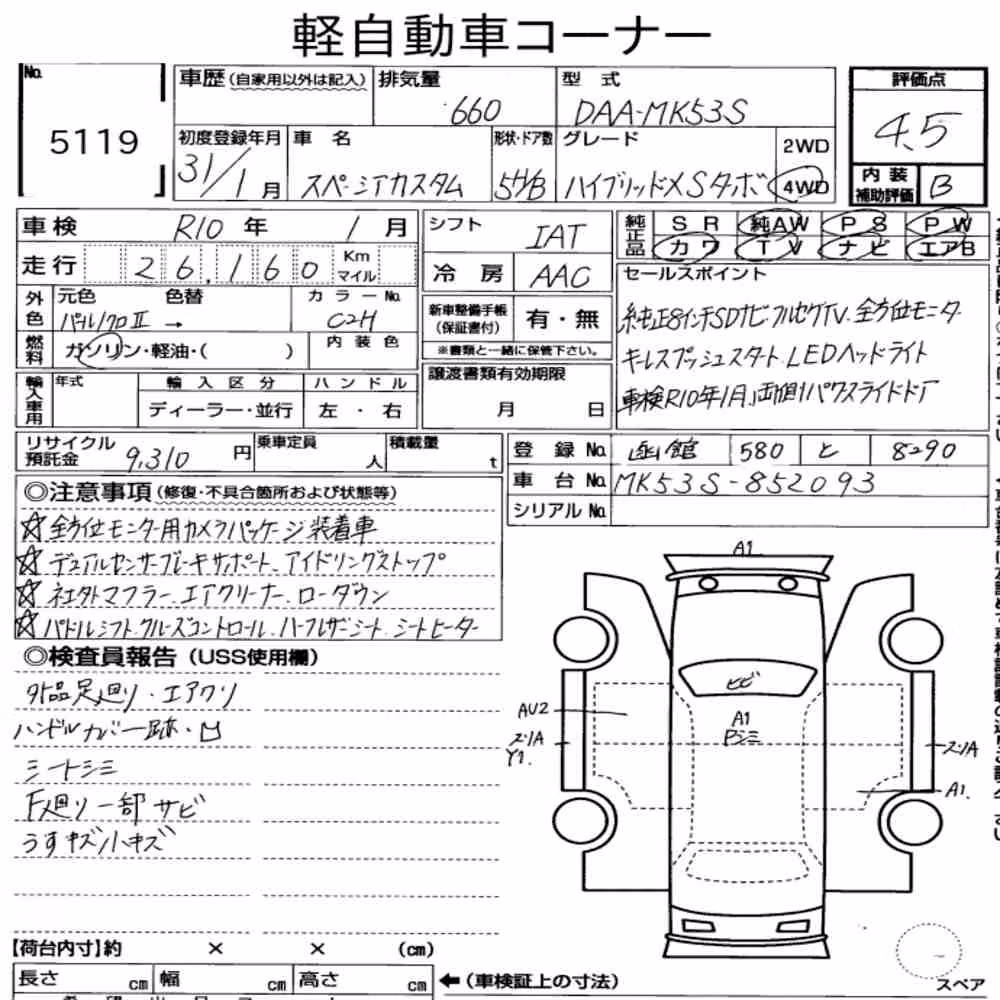 軽自動車コーナー
No.
5119
車歴(自家用以外は記入)
排気量
660
型式
DAA-MK53S
評価点
4.5
内装補助評価
B
初度登録年月
31/1月
車名
スペーシアカスタム
形状・ドア数
5H/B
グレード
ハイブリッドXSターボ
2WD
4WD
車検
R10年 1月
走行
26,160
Km
マイル
外色
元色
色替
パールクロⅡ →
カラーNo.
C2H
燃料
ガソリン・軽油・( )
内装色
輸入車用
年式
輸入区分
ディーラー・並行
ハンドル
左・右
シフト
IAT
冷房
AAC
新車整備手帳(保証書付)
有・無
※書類と一緒に保管下さい。
譲渡書類有効期限
月 日
純正品
SR
純AW
PS
PW
カワ
TV
ナビ
エアB
セールスポイント
純正8インチSDナビ フルセグTV、全方位モニター
キーレスプッシュスタート LEDヘッドライト
車検R10年1月、両側パワスライドドア
リサイクル預託金
9,310円
乗車定員
人
積載量
t
登録No.
函館 580 と 8290
車台No.
MK53S-852093
シリアルNo.
◎注意事項(修復・不具合箇所および状態等)
☆全方位モニター用カメラパッケージ装着車
☆デュアルセンサーブレーキサポート、アイドリングストップ
☆社外マフラー、エアクリーナー、ローダウン
☆パドルシフト、クルーズコントロール、ハーフレザーシート、シートヒーター
◎検査員報告(USS使用欄)
外品足廻り・エアクリ
ハンドルカバー跡・凹
シートシミ
下廻り一部サビ
うすキズ小キズ
A1
ヒビ
A1
Pシミ
AU2
スリA
Y1.
スリA
A1.
スペア
【荷台内寸】約 × × (cm)
長さ cm
幅 cm
高さ cm
←(車検証上の寸法)